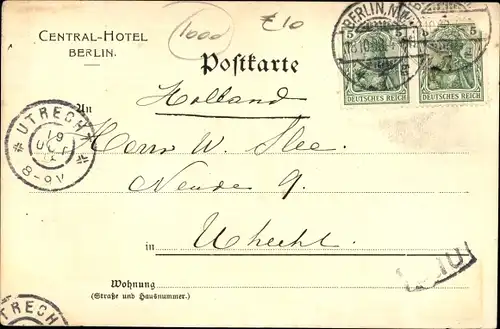 CENTRAL-HOTEL
BERLIN.
1000
£10
Postkarte
BERLIN, N.W.
5 5
5 5
DEUTSCHES REICH
DEUTSCHES REICH
Holland
An
Herrn W. Slee.
Neude 9.
in Utrecht.
UTRECHT
19
OCT
8-9V
Wohnung
(Straße und Hausnummer.)
UTRECHT